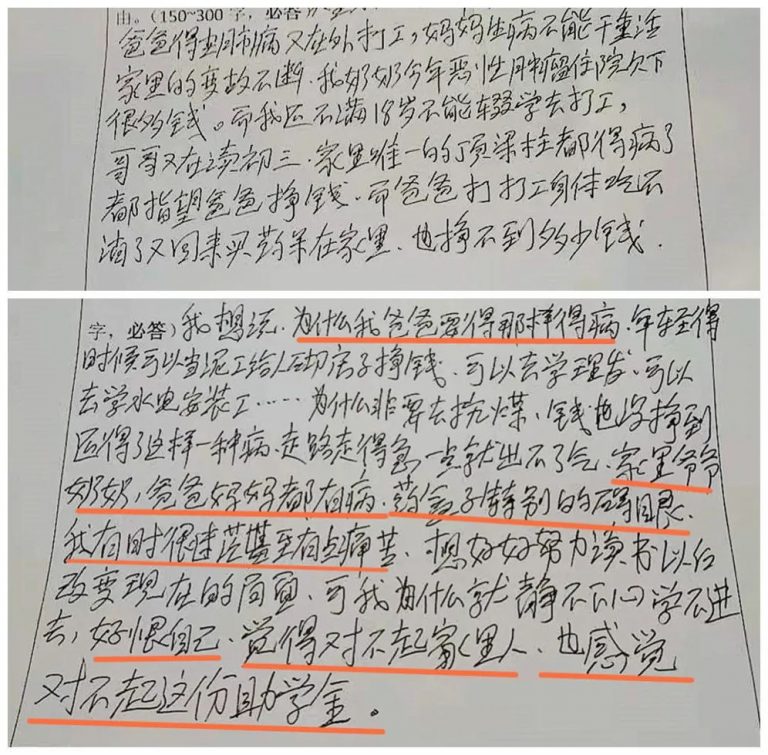 由。（150~300字，必答）
爸爸得尘肺病又在外打工，妈妈生病不能干重活
家里的变故不断．我奶奶今年恶性肿瘤住院欠下
很多钱。而我还不满18岁不能辍学去打工，
哥哥又在读初三．家里唯一的顶梁柱都得病了
都指望爸爸挣钱．而爸爸打打工身体吃不
消了又回来买药呆在家里．也挣不到多少钱．
字，必答）我想说．为什么我爸爸要得那样得病．年轻得
时候可以当泥工给人砌房子挣钱．可以去学理发．可以
去学水电安装工……为什么非要去挖煤．钱也没挣到
还得了这样一种病．走路走得急一点就出不了气．家里爷爷
奶奶，爸爸妈妈都有病．药盒子特别的碍眼．
我有时很迷茫甚至有点痛苦．想好好努力读书以后
改变现在的局面．可我为什么就静不下心学不进
去，好恨自己．觉得对不起家里人．也感觉
对不起这份助学金。